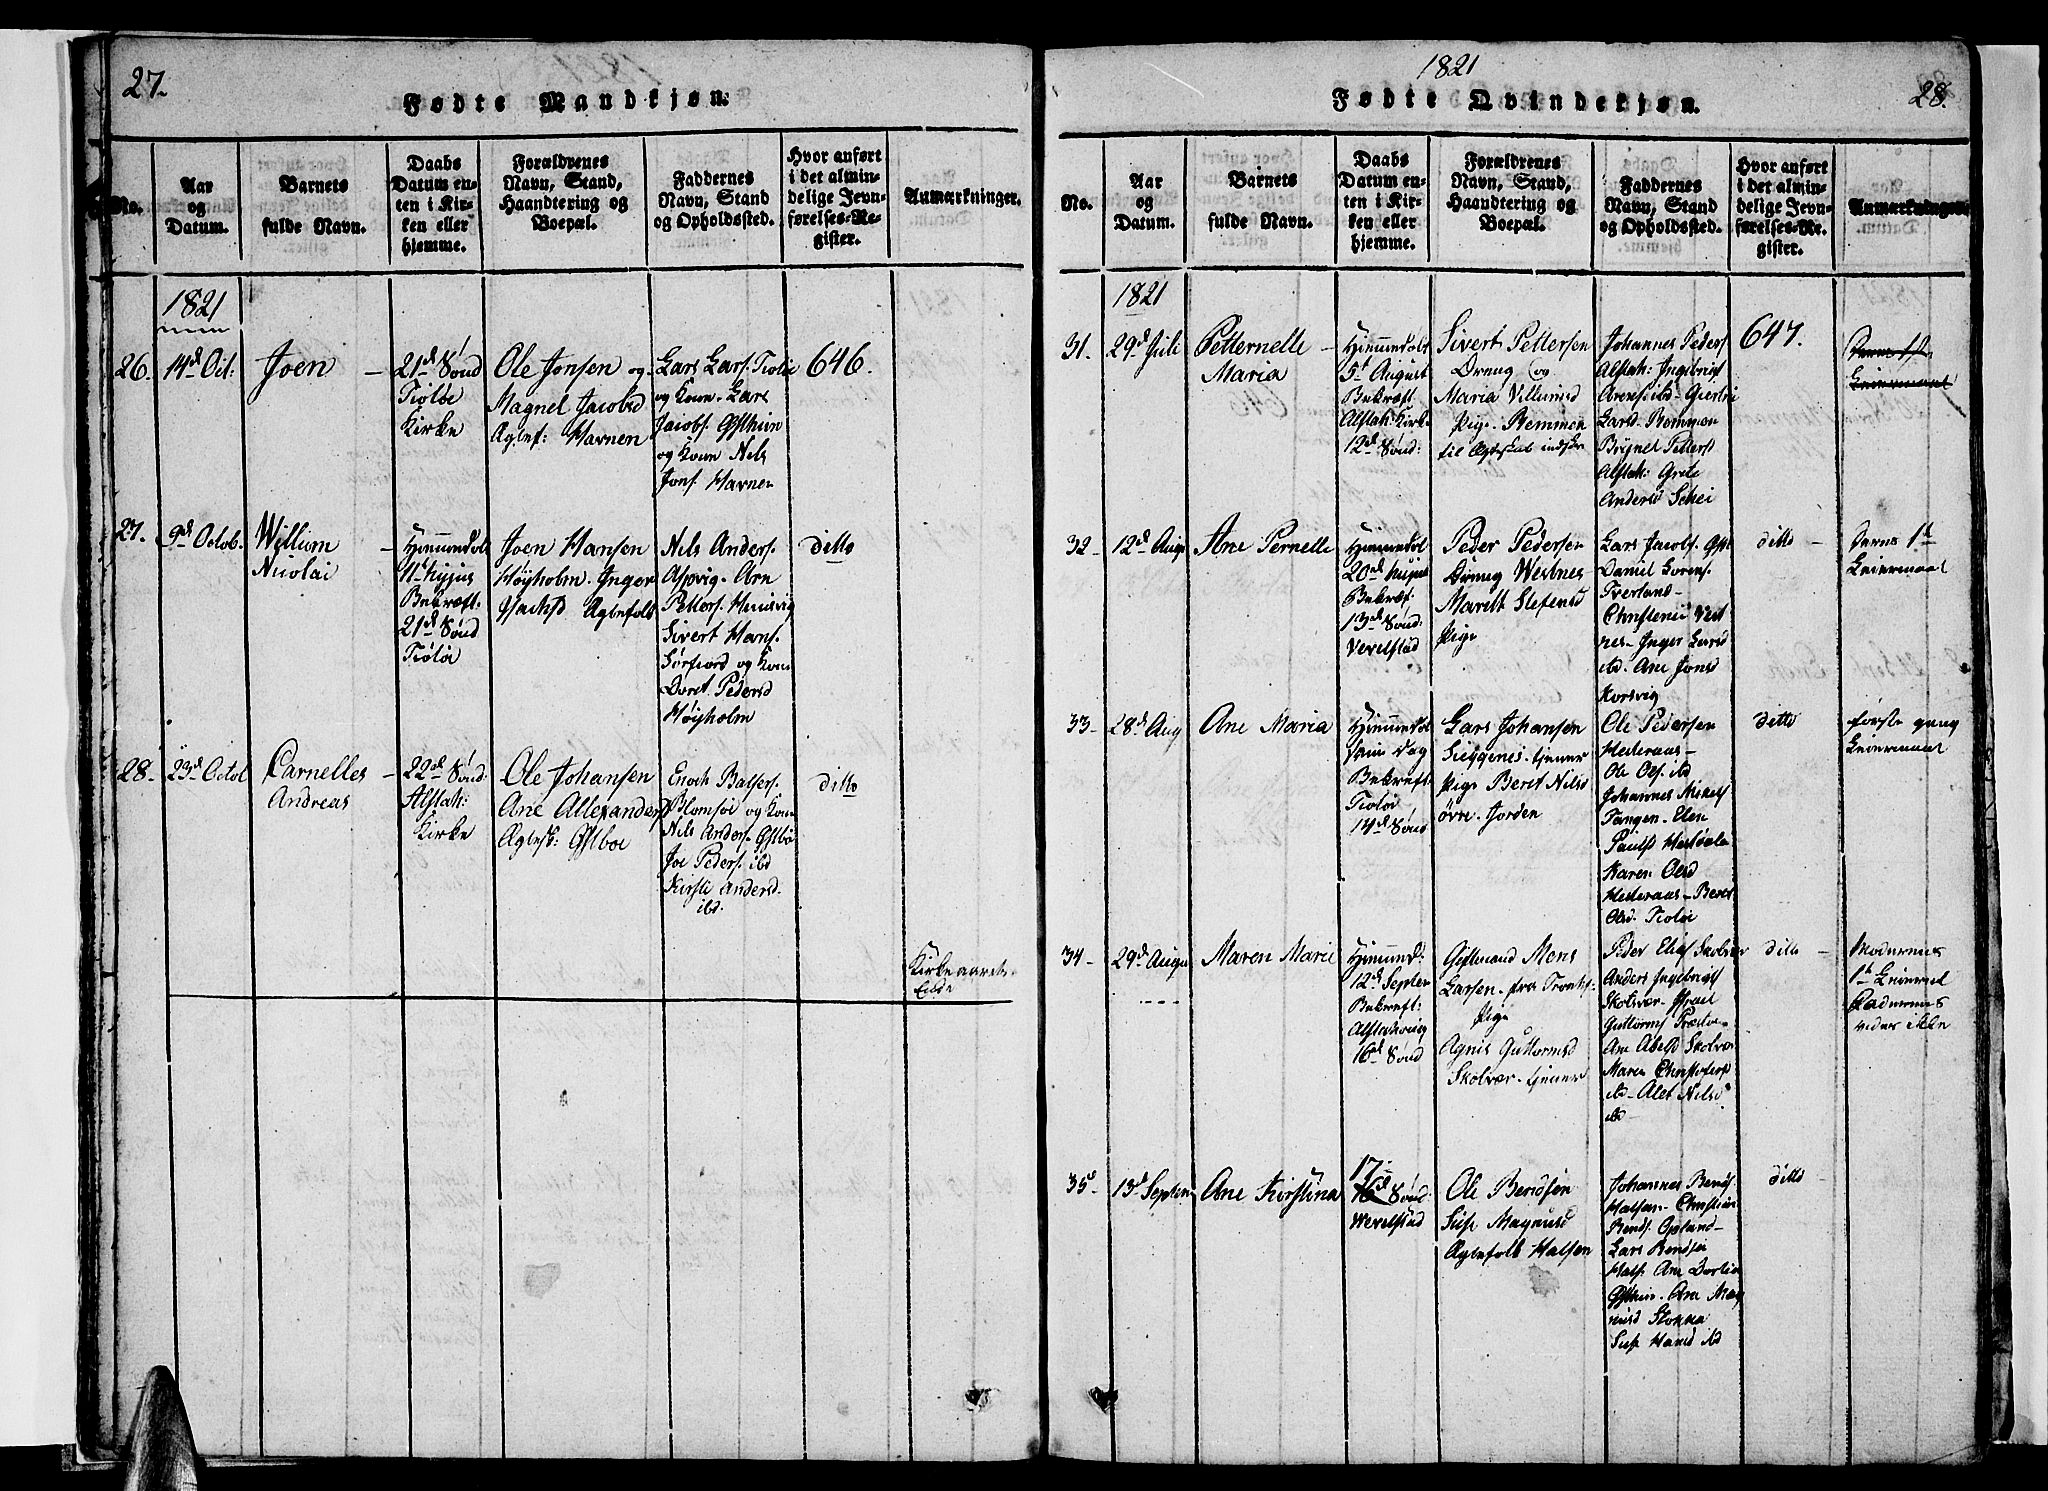 27.
Fødte Mandkjøn.
No.
Aar
og
Datum.
Barnets
fulde Navn.
Daabs
Datum en-
ten i Kir-
ken eller
hjemme.
Forældrenes
Navn, Stand,
Haandtering og
Boepæl.
Faddernes
Navn, Stand
og Opholdssted.
Hvor anført
i det almin-
delige Jevn-
førelses-Re-
gister.
Anmærkninger.
1821
26.
14d Oct:
Joen
21d Sönd
Tiöløe
Kirke
Ole Jonsen og
Magnel Jacobsd
Ægtef: Havnen
Lars Lars. Tiöløe
og Kone. Lars
Jacobs.
og Kone Nils
Jons. Havnen
646.
27.
9d Octob.
Willum
Nicolai
Hjemmedöbt
Bekræft.
21d Sönd
Tiölöe
Joen Hansen
Høyholm. Inger
Ægtefolk
Nils Anders.
Aspvig. Arn
Petters.
Sivert Hans.
Sørfiord og Kone
Doret. Pedersd
Høyholm
ditto
28.
23d Octob
Carnelles
Andreas
22d Sönd.
Alstah:
Kirke
Ole Johansen
Ane Allexandersd
Ægtef:
Enoch Balsers.
Blomsøe og Kone
Nils Anders.
Joe Peders. ibd
Kirsti Andersd.
ibd.
ditto
Kirkeaarets
Ende
1821
28.
Fødte Qvindekjøn.
No.
Aar
og
Datum.
Barnets
fulde Navn.
Daabs
Datum en-
ten i Kir-
ken eller
hjemme.
Foreldrenes
Navn, Stand,
Haandtering og
Boepæl.
Faddernes
Navn, Stand
og Opholdssted.
Hvor anført
i det almin-
delige Jevn-
førelses-Re-
gister.
Anmærkninger.
1821
31.
29d Juli
Petternelle
Maria
Hjemmedöbt
5t August
Bekræft
Alstah: Kirke
12d Sönd:
Sivert Pettersen
Dreng og
Maria Villumsd
Pige. Remmen
til Ægteskab indskr
Johannes Peders
Alstah: Ingebrigt
Arens. ibd. Giertru
Larsd. Remmen
Brynel Petters
Alstah: Grete
Andersd Schei
647.
32.
12d Aug
Ane Pernelle
Hjemmedöbt
20d August
Bekræf:
13d Sönd:
Vevelstad
Peder Pedersen
Dreng Westnes
Marit Stefensd
Pige
Lars Jacobs.
Daniel Lorens.
Tverland
Christence Vest
nes. Inger Larsd
ibd. Ane Jonsd
Korsvig
ditto
Deres 1te
Leiermaal
33.
28d Aug
Ane Maria
Hjemmedöbt
samme Dag
Bekræft:
Tiölöe
14d Sönd
Lars Johansen
tjener
Pige Beret Nilsd
övre Jorden
Ole Pedersen
Hesteraas
Ole Ols. ibd
Johannes Mikels
Tangen. Elen
Paulsd
Karen Olsd
Hesteraas. Beret
Olsd. Tiölöe
ditto
første gang
Leiermaal
34.
29d Aug
Maren Marie
Hjemmed:
12d Septem
Bekræft:
16d Sönd
Giftmand Mons
Larsen. fra Tromsö:
Pige
Agnis Guttormsd
Skolvær. tjener
Peder Elias Skolvær
Anders Ingebrigts
Skolvær. Israel
Guttorms
Ane Abelsd Skolvær
Maren Christofersd
ibd. Alet Nilsd
ibd
ditto
Moderens
1te Leiermaal
Faderens
vides ikke
35.
13d Septem
Ane Kirstina
17.
16d Sönd:
Wevelstad
Ole Bendsen
Sise Magnusd
Ægtefolk Halsen
Johannes Bends.
Halsen. Christian
Bends. Opland
Lars Bendsen
Hals. Ane Dortea
Ane Mag
nusd Stokka
Sise Hansd ibd
ditto